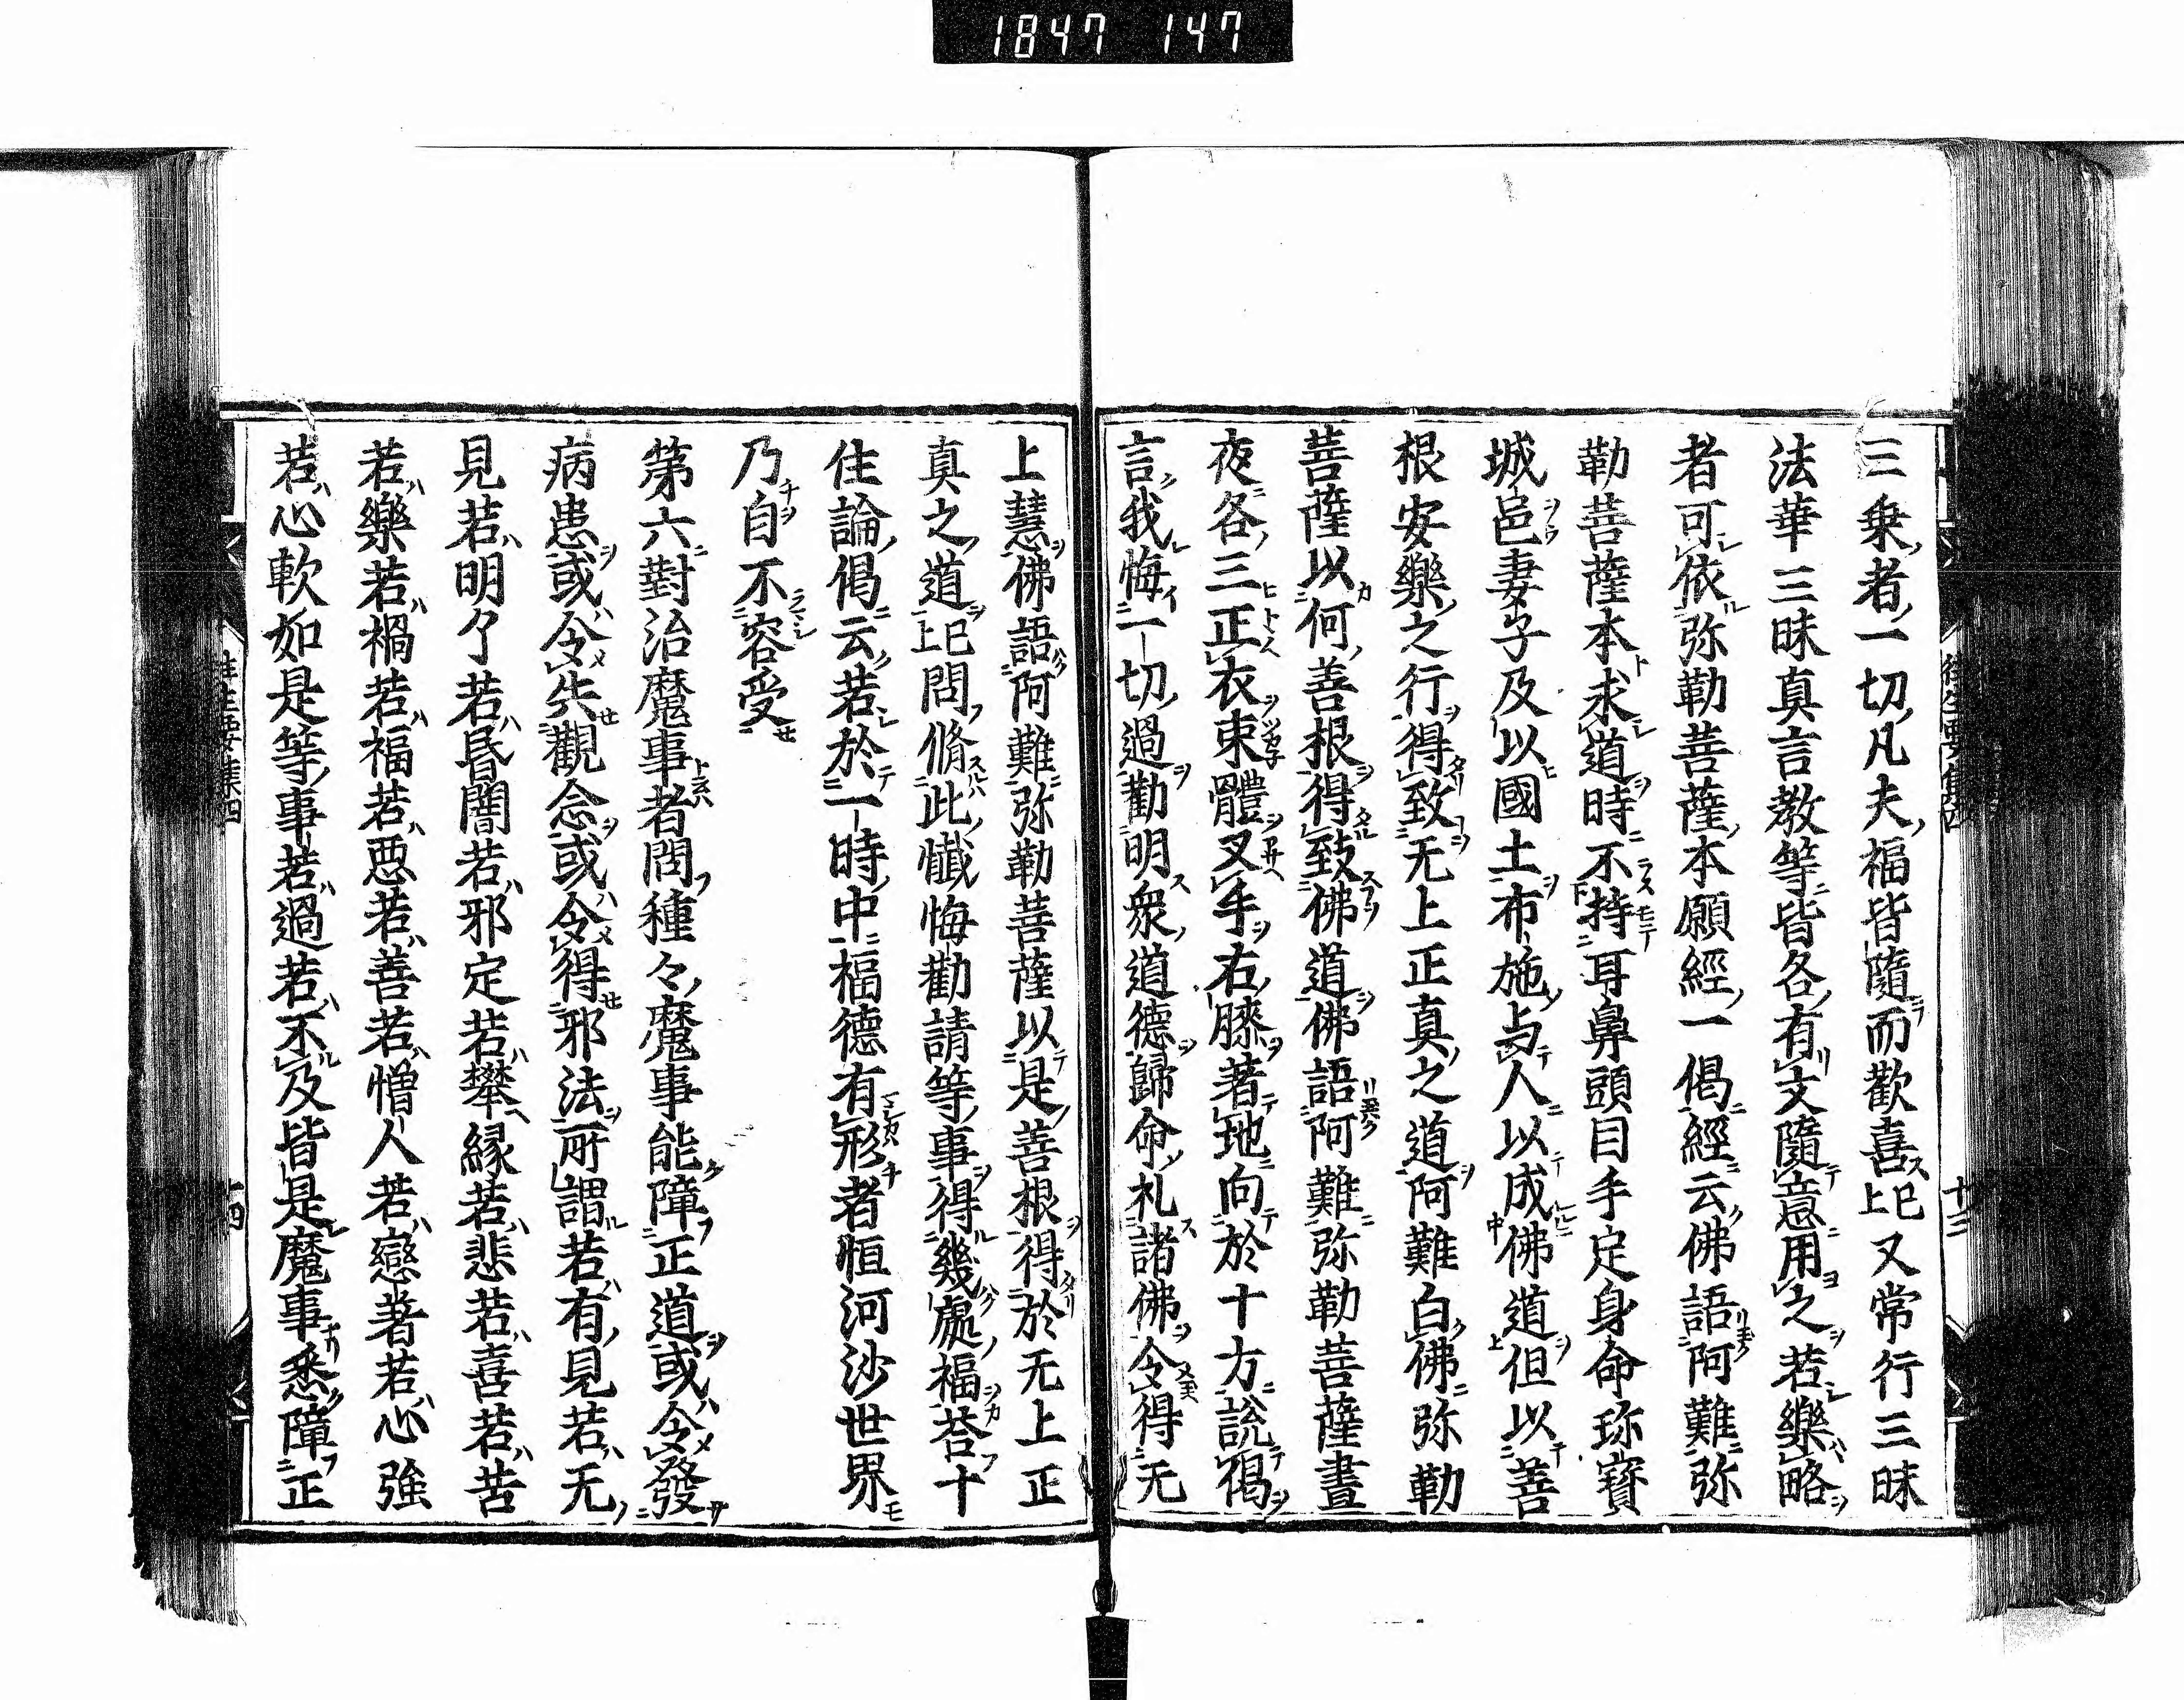 1847 147
三乗者一切凡夫福皆隨而歡喜已上又常行三昧
法華三昧真言教等皆各有文隨意用之若樂略
者可依弥勒菩薩本願經一偈經云佛語阿難弥
勒菩薩本求道時不持耳鼻頭目手足身命珎寳
城邑妻子及以國土布施与人以成佛道但以善
根安樂之行得致无上正真之道阿難白佛弥勒
菩薩以何善根得致佛道佛語阿難弥勒菩薩晝
夜各三正衣束體叉手右膝著地向於十方說偈
言我悔一切過勸明衆道德歸命礼諸佛令得无
上慧佛語阿難弥勒菩薩以是善根得於无上正
真之道已上問脩此懺悔勸請等事得幾處福荅十
住論偈云若於一時中福德有形者恒河沙世界
乃自不容受
第六對治魔事者問種々魔事能障正道或令發
病患或令失觀念或令得邪法所謂若有見若无
見若明了若昏闇若邪定若攀縁若悲若喜若苦
若樂若禍若福若悪若善若憎人若戀著若心強
若心軟如是等事若過若不及皆是魔事悉障正